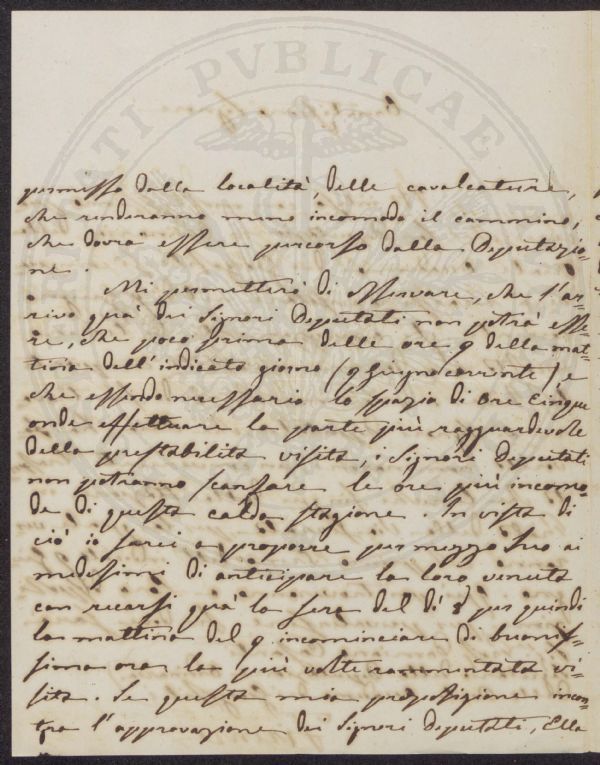 PVBLICAE
permesso dalla località, delle cavalcature,
che renderanno meno incomodo il cammino,
che dovrà essere percorso dalla Deputazio-
ne.
Mi permetterò di osservare, che l'ar-
rivo quà dei Signori Deputati non potrà esse-
re, che poco prima delle ore 9 della mat-
tina dell'indicato giorno (9 Giugno corrente), e
che essendo necessario lo spazio di Ore Cinque
onde effettuare la parte più ragguardevole
della prestabilita visita, i Signori Deputati
non potranno scansare le ore più incomo-
de di questa calda stagione. In vista di
ciò io sarei a proporre per mezzo Suo ai
medesimi di anticipare la loro venuta
con recarsi quà la sera del dì 8 per quindi
la mattina del 9 incominciare di buonis-
sima ora la più volte rammentata vi-
sita. Se questa mia proposizione incon-
tra l'approvazione dei Signori Deputati, Ella